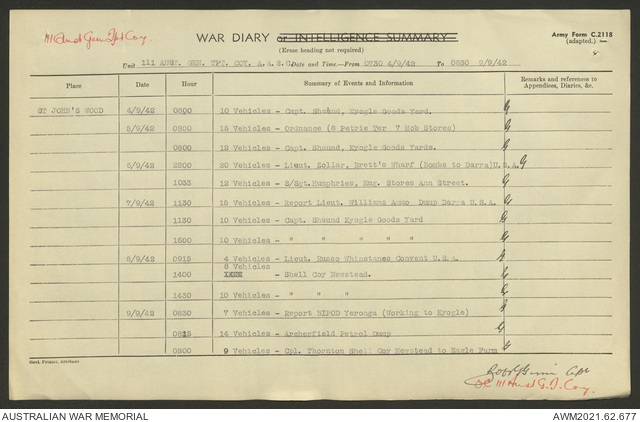 111 Aust Gen Tpt Coy.
WAR DIARY or INTELLIGENCE SUMMARY
Army Form C.2118
(adapted.)
(Erase heading not required)
Unit 111 AUST. GEN. TPT. COY. A.A.S.C. Date and Time.—From 0730 4/9/42 To 0830 9/9/42
Place Date Hour Summary of Events and Information Remarks and references to Appendices, Diaries, &c.
ST JOHN'S WOOD 4/9/42 0800 10 Vehicles - Capt. Shsund, Kyogle Goods Yard.
5/9/42 0800 15 Vehicles - Ordnance (8 Petrie Ter 7 Mob Stores)
0800 12 Vehicles - Capt. Shsund, Kyogle Goods Yards.
6/9/42 2200 20 Vehicles - Lieut. Zollar, Brett's Wharf (Bombs to Darra) U.S.A.
1035 12 Vehicles - S/Sgt. Humphries, Eng. Stores Ann Street.
7/9/42 1130 15 Vehicles - Report Lieut. Williams Ammo Dump Darra U.S.A.
1130 10 Vehicles - Capt. Shsund Kyogle Goods Yard
1600 10 Vehicles - " " " " "
8/9/42 0915 4 Vehicles - Lieut. Russo Whinstanes Convent U.S.A.
1400 8 Vehicles - Shell Coy Newstead.
1430 10 Vehicles - " " "
9/9/42 0830 7 Vehicles - Report BIPOD Yeronga (Working to Kyogle)
0815 14 Vehicles - Archerfield Petrol Dump
0800 9 Vehicles - Cpl. Thornton Shell Coy Newstead to Eagle Farm
Capt
OC 111 Aust G.T. Coy.
AUSTRALIAN WAR MEMORIAL
AWM2021.62.677